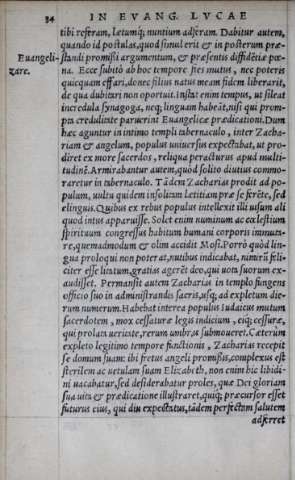 34 IN EVANG. LVCAE
tibi referam, letumq; nuntium adferam. Dabitur autem,
quando id postulas, quod simul erit & in posterum præ-
Euangeli- standi promissi argumentum, & præsentis diffidētiæ pœ-
zare. na. Ecce subitò ab hoc tempore fies mutus, nec poteris
quicquam effari, donec filius natus meam fidem liberarit,
de qua dubitari non oportuit. Instat enim tempus, ut sileat
incredula synagoga, neq; linguam habeāt, nisi qui prom-
pta credulitate paruerint Euangelicæ prædicationi. Dum
hæc aguntur in intimo templi tabernaculo, inter Zacha-
riam & angelum, populus uniuersus expectabat, ut pro-
diret ex more sacerdos, reliqua peracturus apud multi-
tudinē. Armirabantur autem, quòd solito diutius commo-
raretur in tabernaculo. Tādem Zacharias prodit ad po-
pulum, uultu quidem insolitam letitiam præ se ferēte, sed
elinguis. Quibus ex rebus populus intellexit illi uisum ali
quod intus apparuisse. Solet enim numinum ac cœlestium
spirituum congressus habitum humani corporis immuta-
re, quemadmodum & olim accidit Mosi. Porrò quòd lin-
gua proloqui non poterat, nutibus indicabat, nimirū feli-
citer esse litatum, gratias agerēt deo, qui uota suorum ex-
audisset. Permansit autem Zacharias in templo fungens
officio suo in administrandis sacris, usq; ad expletum die-
rum numerum. Habebat interea populus Iudaicus mutum
sacerdotem, mox cessaturæ legis indicium, eiq; cessuræ,
qui prolata ueritate, rerum umbras submoueret. Cæterùm
expleto legitimo tempore functionis, Zacharias recepit
se domum suam: ibi fretus angeli promissis, complexus est
sterilem ac uetulam suam Elizabeth, non enim hic libidi-
ni uacabatur, sed desiderabatur proles, quæ Dei gloriam
sua uita & prædicatione illustraret, quiq; præcursor esset
futurus eius, qui diu expectatus, tādem perfectam salutem
adferret